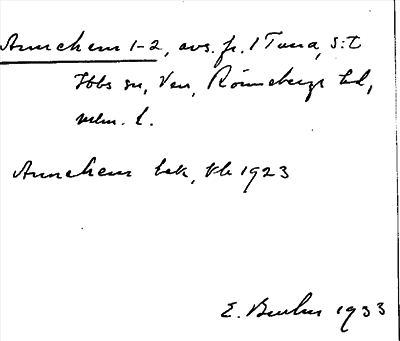 Annehem 1-2, avs. fr. 1 Tuna, S:t
Ibbs sn, Ven, Rönnebergs hd,
mlm. l.
Annehem bek, Vb 1923
E. 1933